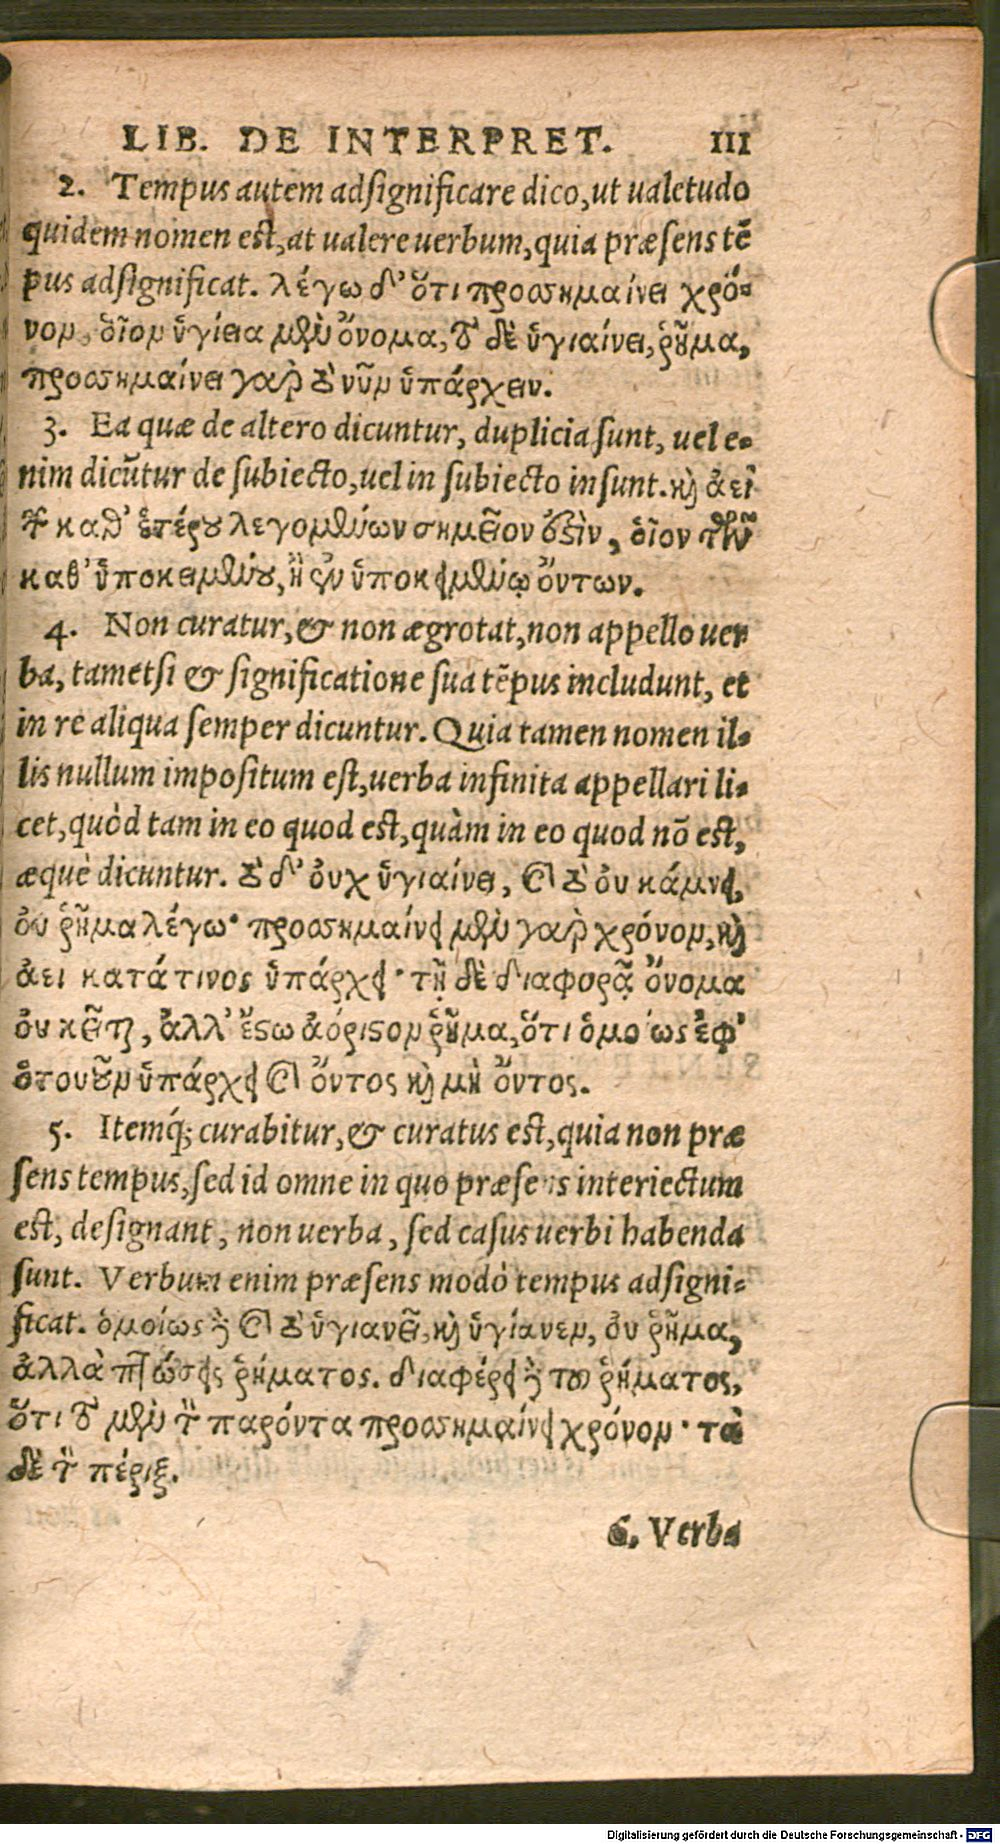 LIB. DE INTERPRET. III
2. Tempus autem adsignificare dico, ut ualetudo
quidem nomen est, at ualere uerbum, quia præsens tē
pus adsignificat. λέγω δ' ὅτι προσσημαίνει χρό=
νον, οἷον ὑγίεια μὲν ὄνομα, τὸ δὲ ὑγιαίνει, ῥῆμα,
προσσημαίνει γὰρ τὸ νῦν ὑπάρχειν.
3. Ea quæ de altero dicuntur, duplicia sunt, uel e=
nim dicūtur de subiecto, uel in subiecto insunt. καὶ ἀεὶ
τῶν καθ' ἑτέρου λεγομένων σημεῖον ἐστὶν, οἷον τῶν
καθ' ὑποκειμένου, ἢ ἐν ὑποκειμένῳ ὄντων.
4. Non curatur, & non ægrotat, non appello uer
ba, tametsi & significatione sua tēpus includunt, et
in re aliqua semper dicuntur. Quia tamen nomen il=
lis nullum impositum est, uerba infinita appellari li=
cet, quòd tam in eo quod est, quàm in eo quod nō est,
æquè dicuntur. τὸ δ' οὐχ ὑγιαίνει, καὶ τὸ οὐ κάμνει,
οὐ ῥῆμα λέγω· προσσημαίνει μὲν γὰρ χρόνον, καὶ
ἀεὶ κατά τινος ὑπάρχει· τῇ δὲ διαφορᾷ ὄνομα
οὐ κεῖται, ἀλλ' ἔστω ἀόριστον ῥῆμα, ὅτι ὁμοίως ἐφ'
ὁτουοῦν ὑπάρχει καὶ ὄντος καὶ μὴ ὄντος.
5. Itemq́; curabitur, & curatus est, quia non præ
sens tempus, sed id omne in quo præsens interiectum
est, designant, non uerba, sed casus uerbi habenda
sunt. Verbum enim præsens modò tempus adsigni=
ficat. ὁμοίως δὲ καὶ τὸ ὑγιανεῖ, καὶ ὑγίανεν, οὐ ῥῆμα,
ἀλλὰ πτώσεις ῥήματος. διαφέρει δὲ τοῦ ῥήματος,
ὅτι τὸ μὲν τὸν παρόντα προσσημαίνει χρόνον· τὰ
δὲ τὸν πέριξ.
6. Verba
Digitalisierung gefördert durch die Deutsche Forschungsgemeinschaft - DFG